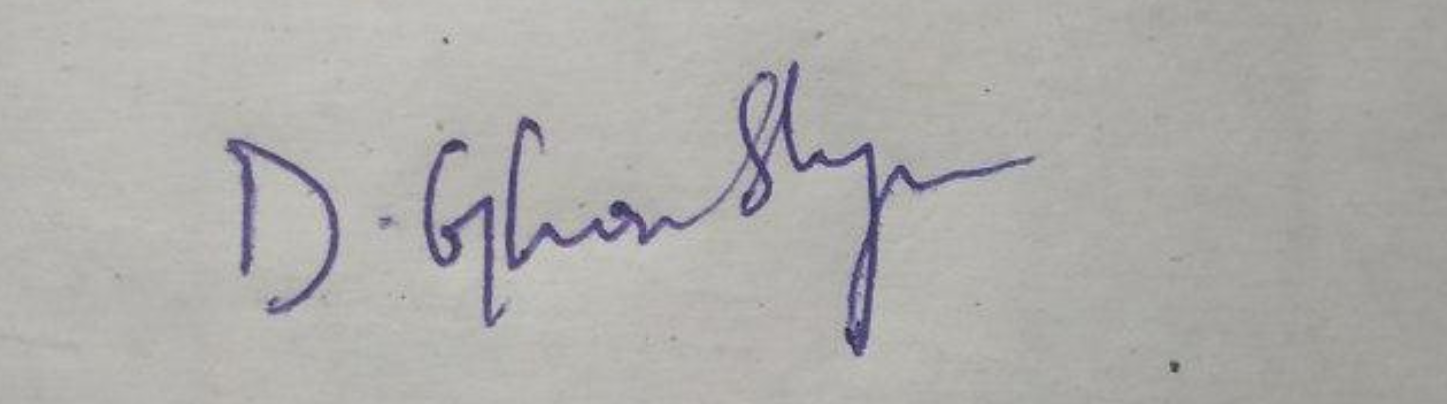 D. Ghanshyam